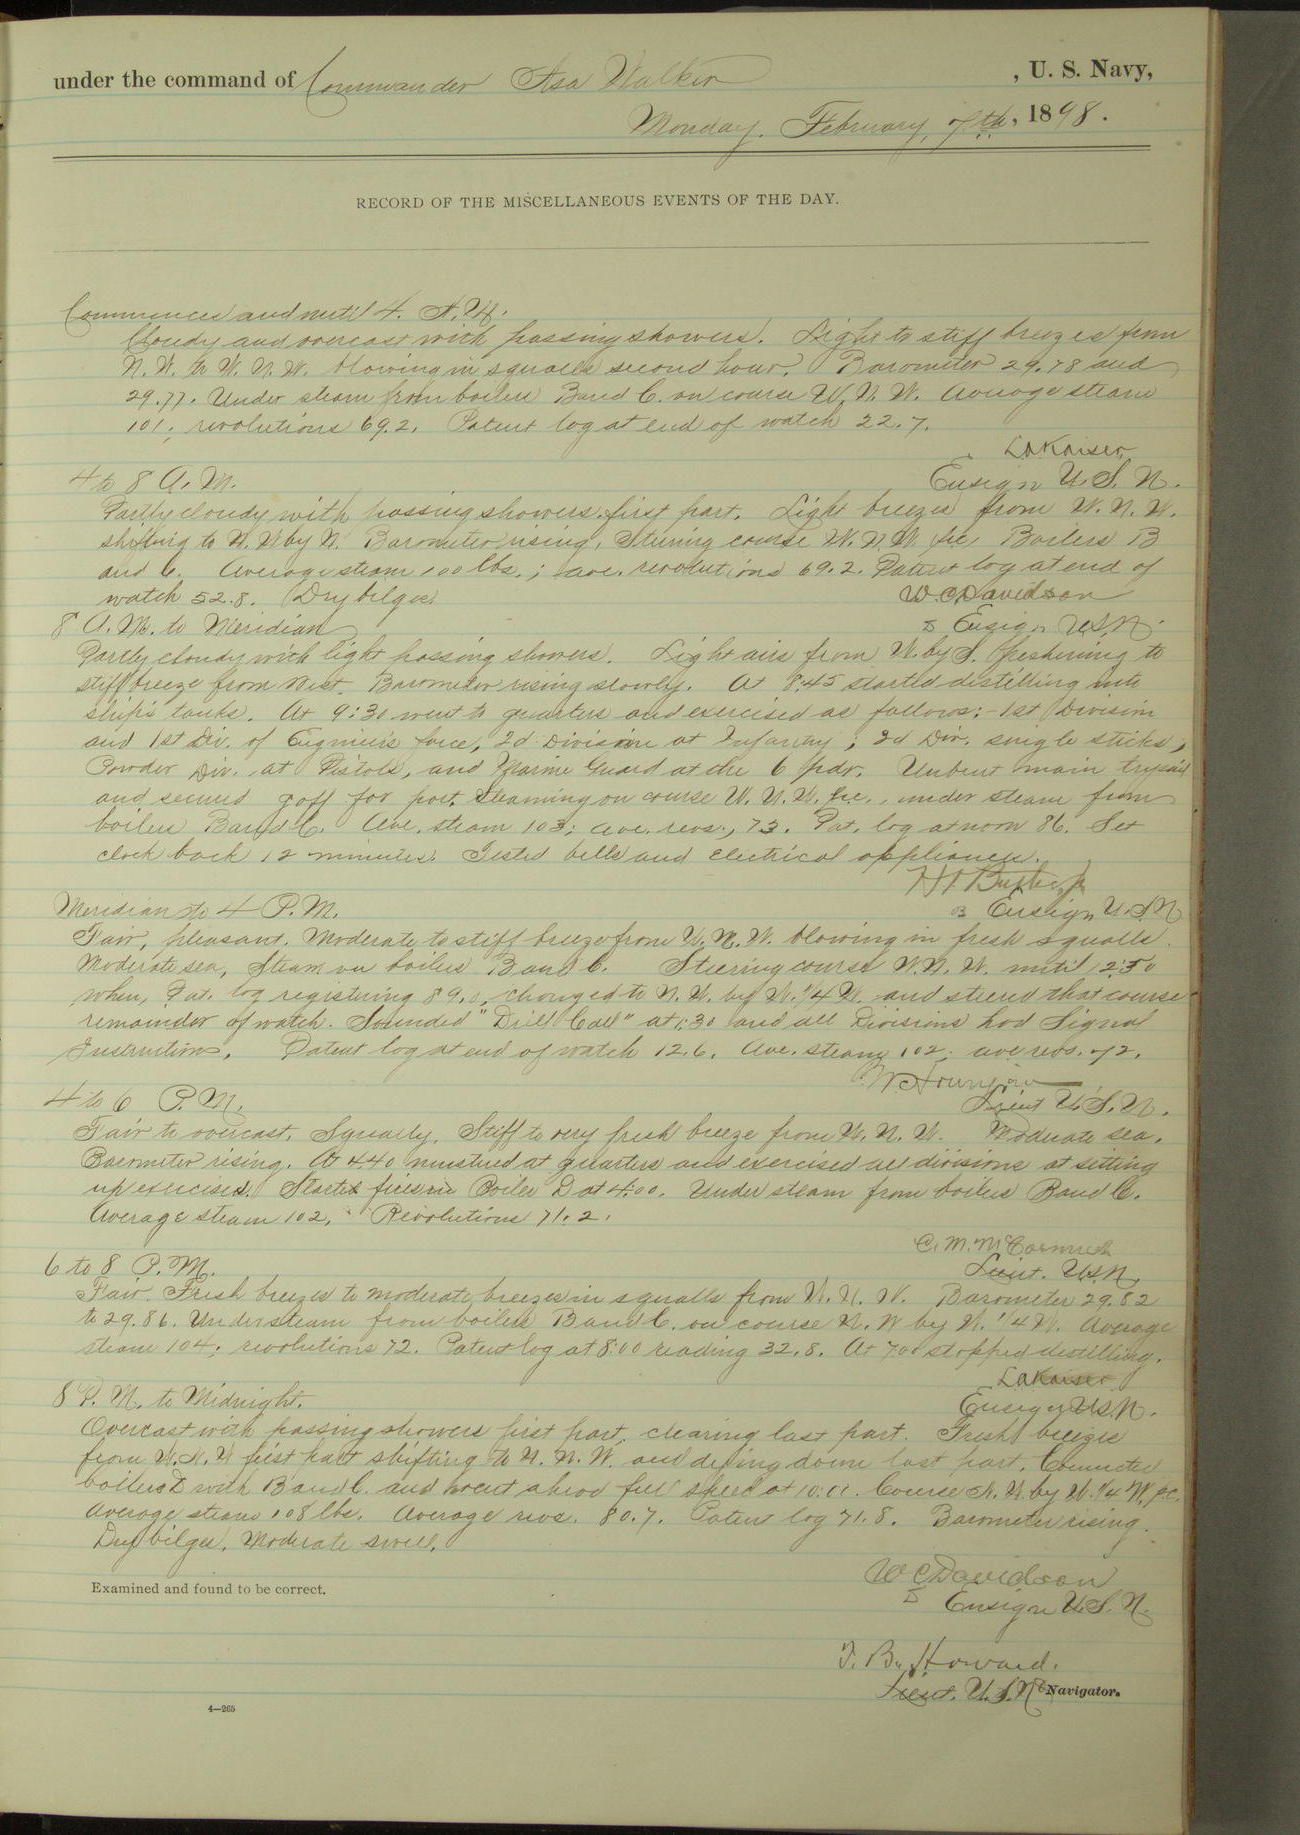 under the command of Commander Asa Walker, U. S. Navy,
Monday, February, 7th, 1898.
RECORD OF THE MISCELLANEOUS EVENTS OF THE DAY.
Commences and until 4. A.M.
Cloudy and overcast with passing showers. Light to stiff breezes from
N.W. to W.N.W. blowing in squalls second hour. Barometer 29.78 and
29.77. Under steam from boilers B and C. on course W.N.W. Average steam
101, revolutions 69.2. Patent log at end of watch 22.7.
LAKaiser
Ensign U.S.N.
4 to 8 A.M.
Partly cloudy with passing showers first part. Light breezes from W.N.W.
shifting to N.W by N. Barometer rising. Steering course W.N.W. p.c. Boilers B
and C. Average steam 100 lbs.; ave. revolutions 69.2. Patent log at end of
watch 52.8. Dry bilges.
W.C.Davidson
Ensign USN.
8 A.M. to Meridian
Partly cloudy with light passing showers. Light airs from W. by S. freshening to
stiff breeze from West. Barometer rising slowly. At 8:45 started distilling into
ship's tanks. At 9:30 went to quarters and exercised as follows:- 1st Division
and 1st Div. of Engineer's force, 2d Division at Infantry; 3d Div. single sticks;
Powder Div. at Pistols, and Marine Guard at the 6 pdr. Unbent main trysail
and secured gaff for port. Steaming on course W.N.W. p.c., under steam from
boilers B and C. Ave. steam 103; ave. revs., 73. Pat. log at noon 86. Set
clock back 12 minutes. Tested bells and electrical appliances.
Ensign U.S.N
Meridian to 4 P.M.
Fair, pleasant. Moderate to stiff breeze from W.N.W. blowing in fresh squalls.
Moderate sea, Steam on boilers B and C. Steering course W.N.W. until 12:50
when, Pat. log registering 89.0, changed to N.W. by W. 1/4 W. and steered that course
remainder of watch. Sounded "Drill Call" at 1:30 and all Divisions had Signal
Instruction. Patent log at end of watch 12.6. Ave. steam 102; ave revs. 72.
Lieut U.S.N.
4 to 6 P.M.
Fair to overcast. Squally. Stiff to very fresh breeze from W.N.W. Moderate sea.
Barometer rising. At 4.40 mustered at quarters and exercised all divisions at setting
up exercises. Started fires in Boiler D at 4:00. Under steam from boilers B and C.
Average steam 102. Revolutions 71.2.
C. M. McCormick
Lieut. USN.
6 to 8 P.M.
Fair. Fresh breezes to moderate breezes in squalls from W.N.W. Barometer 29.82
to 29.86. Under steam from boilers B and C. on course N.W by W. 1/4 W. Average
steam 104; revolutions 72. Patent log at 8:00 reading 32.8. At 7.00 stopped distilling.
LAKaiser
Ensign USN.
8 P.M. to Midnight.
Overcast with passing showers first part, clearing last part. Fresh breezes
from W.N.W first part shifting to N.N.W. and dying down last part. Connected
boiler D with B and C. and went ahead full speed at 10:01. Course N.W by W. 1/4 W. p.c.
Average steam 108 lbs. Average revs. 80.7. Patent log 71.8. Barometer rising.
Dry bilges. Moderate swell.
W C Davidson
Ensign U.S.N.
Examined and found to be correct.
T. B. Howard.
Lieut. U.S.N Navigator.
4—265